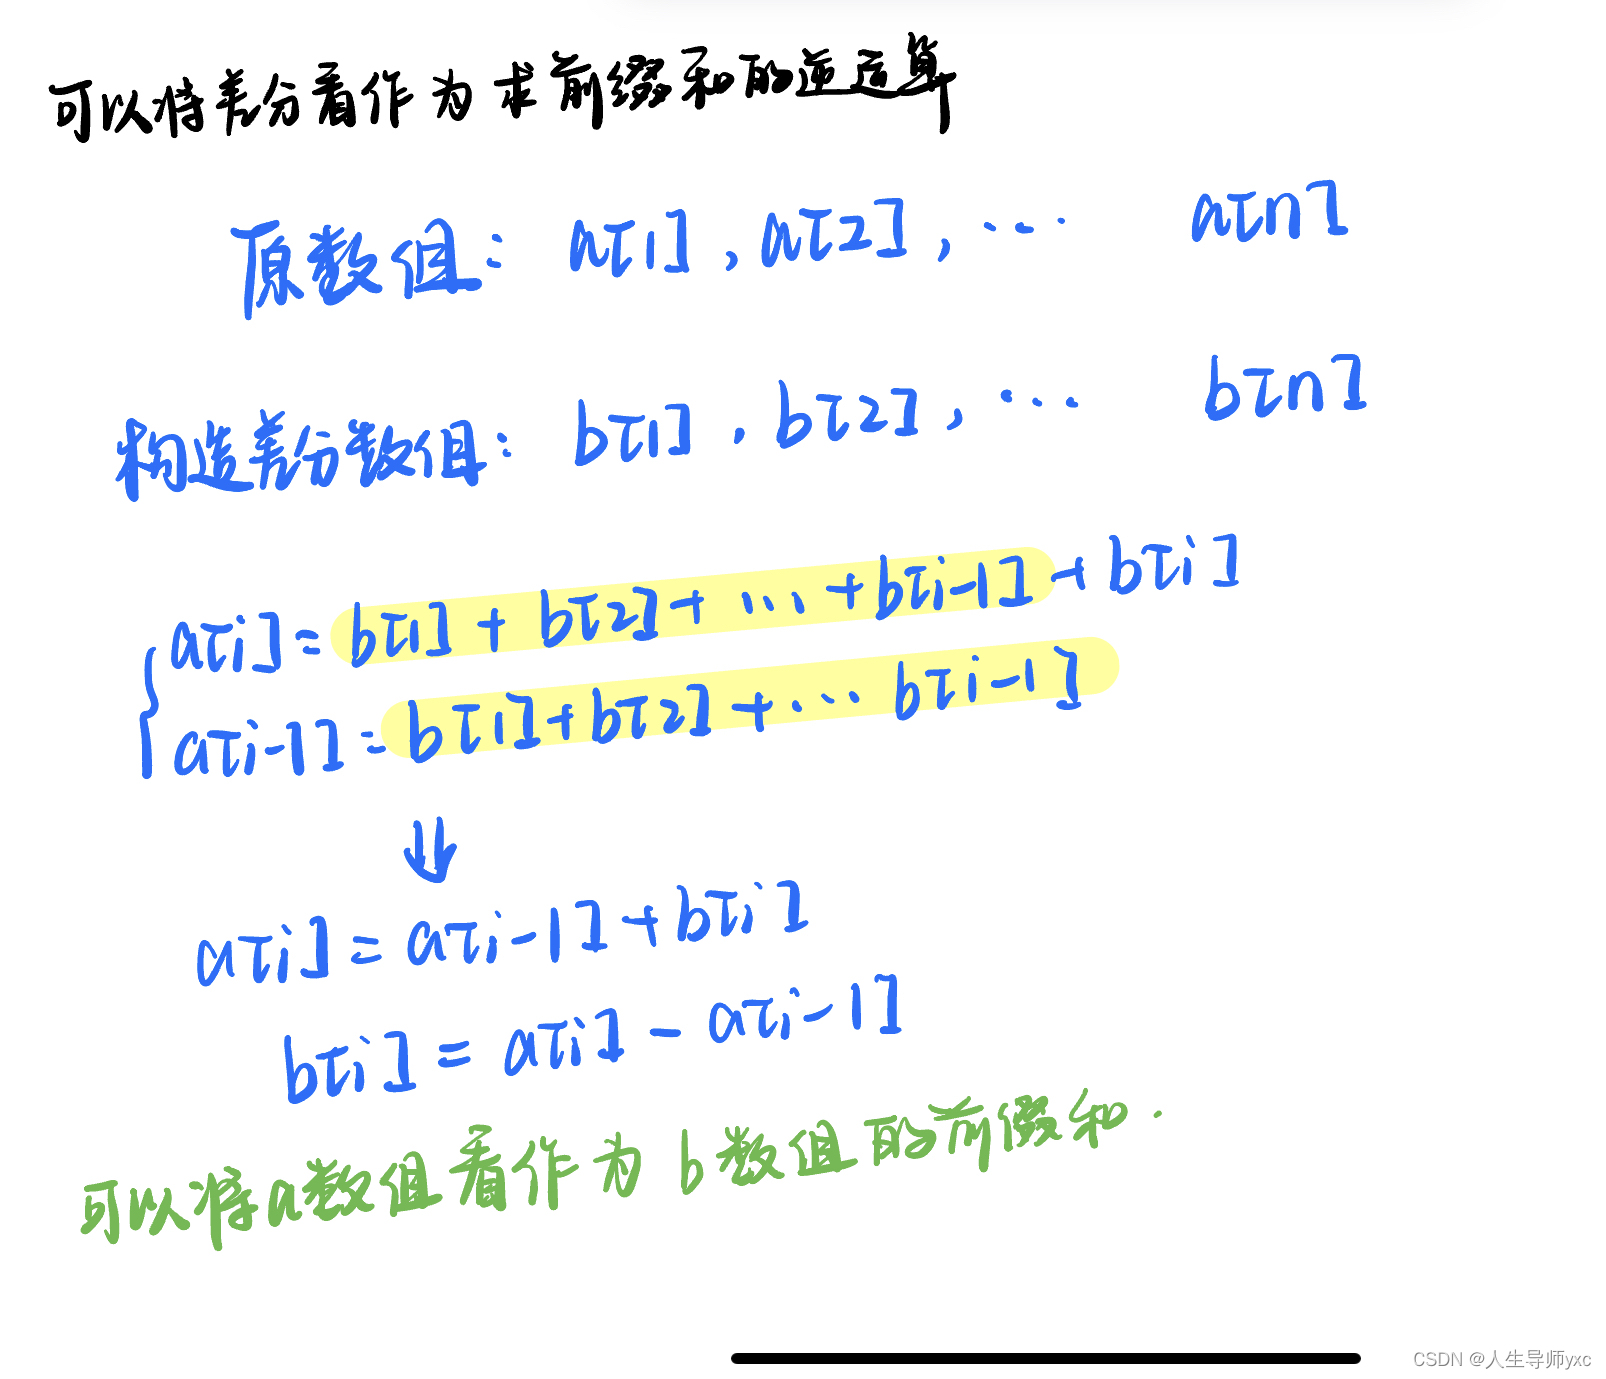 可以将差分看作为求前缀和的逆运算
原数组: a[1], a[2], ... a[n]
构造差分数组: b[1], b[2], ... b[n]
a[i]=b[1]+b[2]+...+b[i-1]+b[i]
a[i-1]=b[1]+b[2]+...b[i-1]
⇓
a[i]=a[i-1]+b[i]
b[i]=a[i]-a[i-1]
可以将a数组看作为b数组的前缀和.
CSDN @人生导师yxc